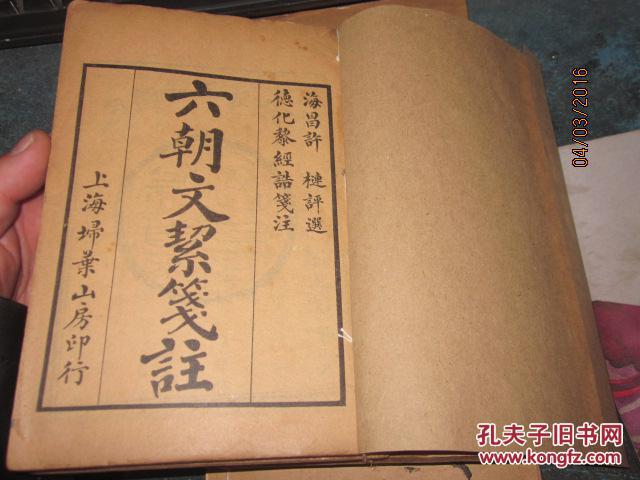 海昌許 槤評選
德化黎經誥箋注
六朝文絜箋註
上海埽葉山房印行
04/03/2016
孔夫子旧书网
www.kongfz.com